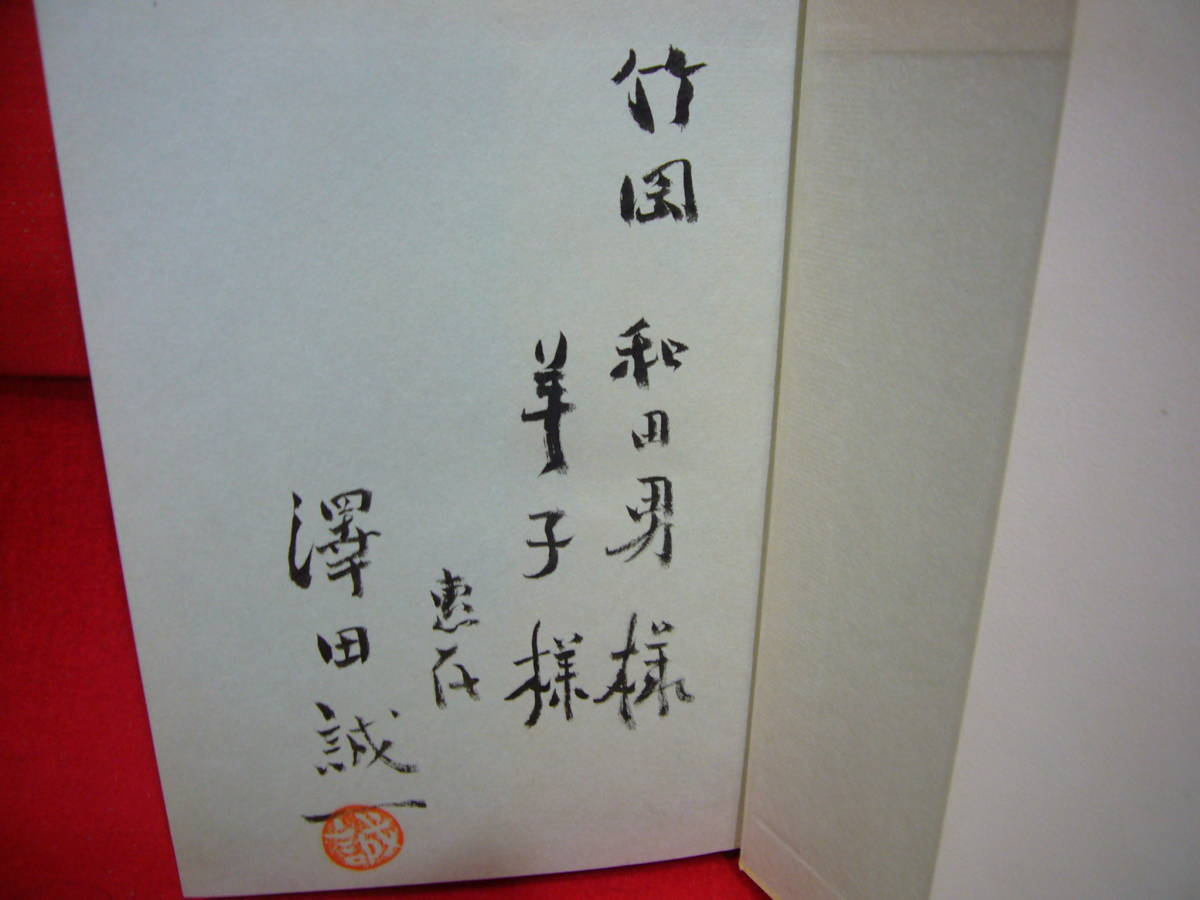 竹岡 和田男様
羊子様
恵存
澤田誠一
誠